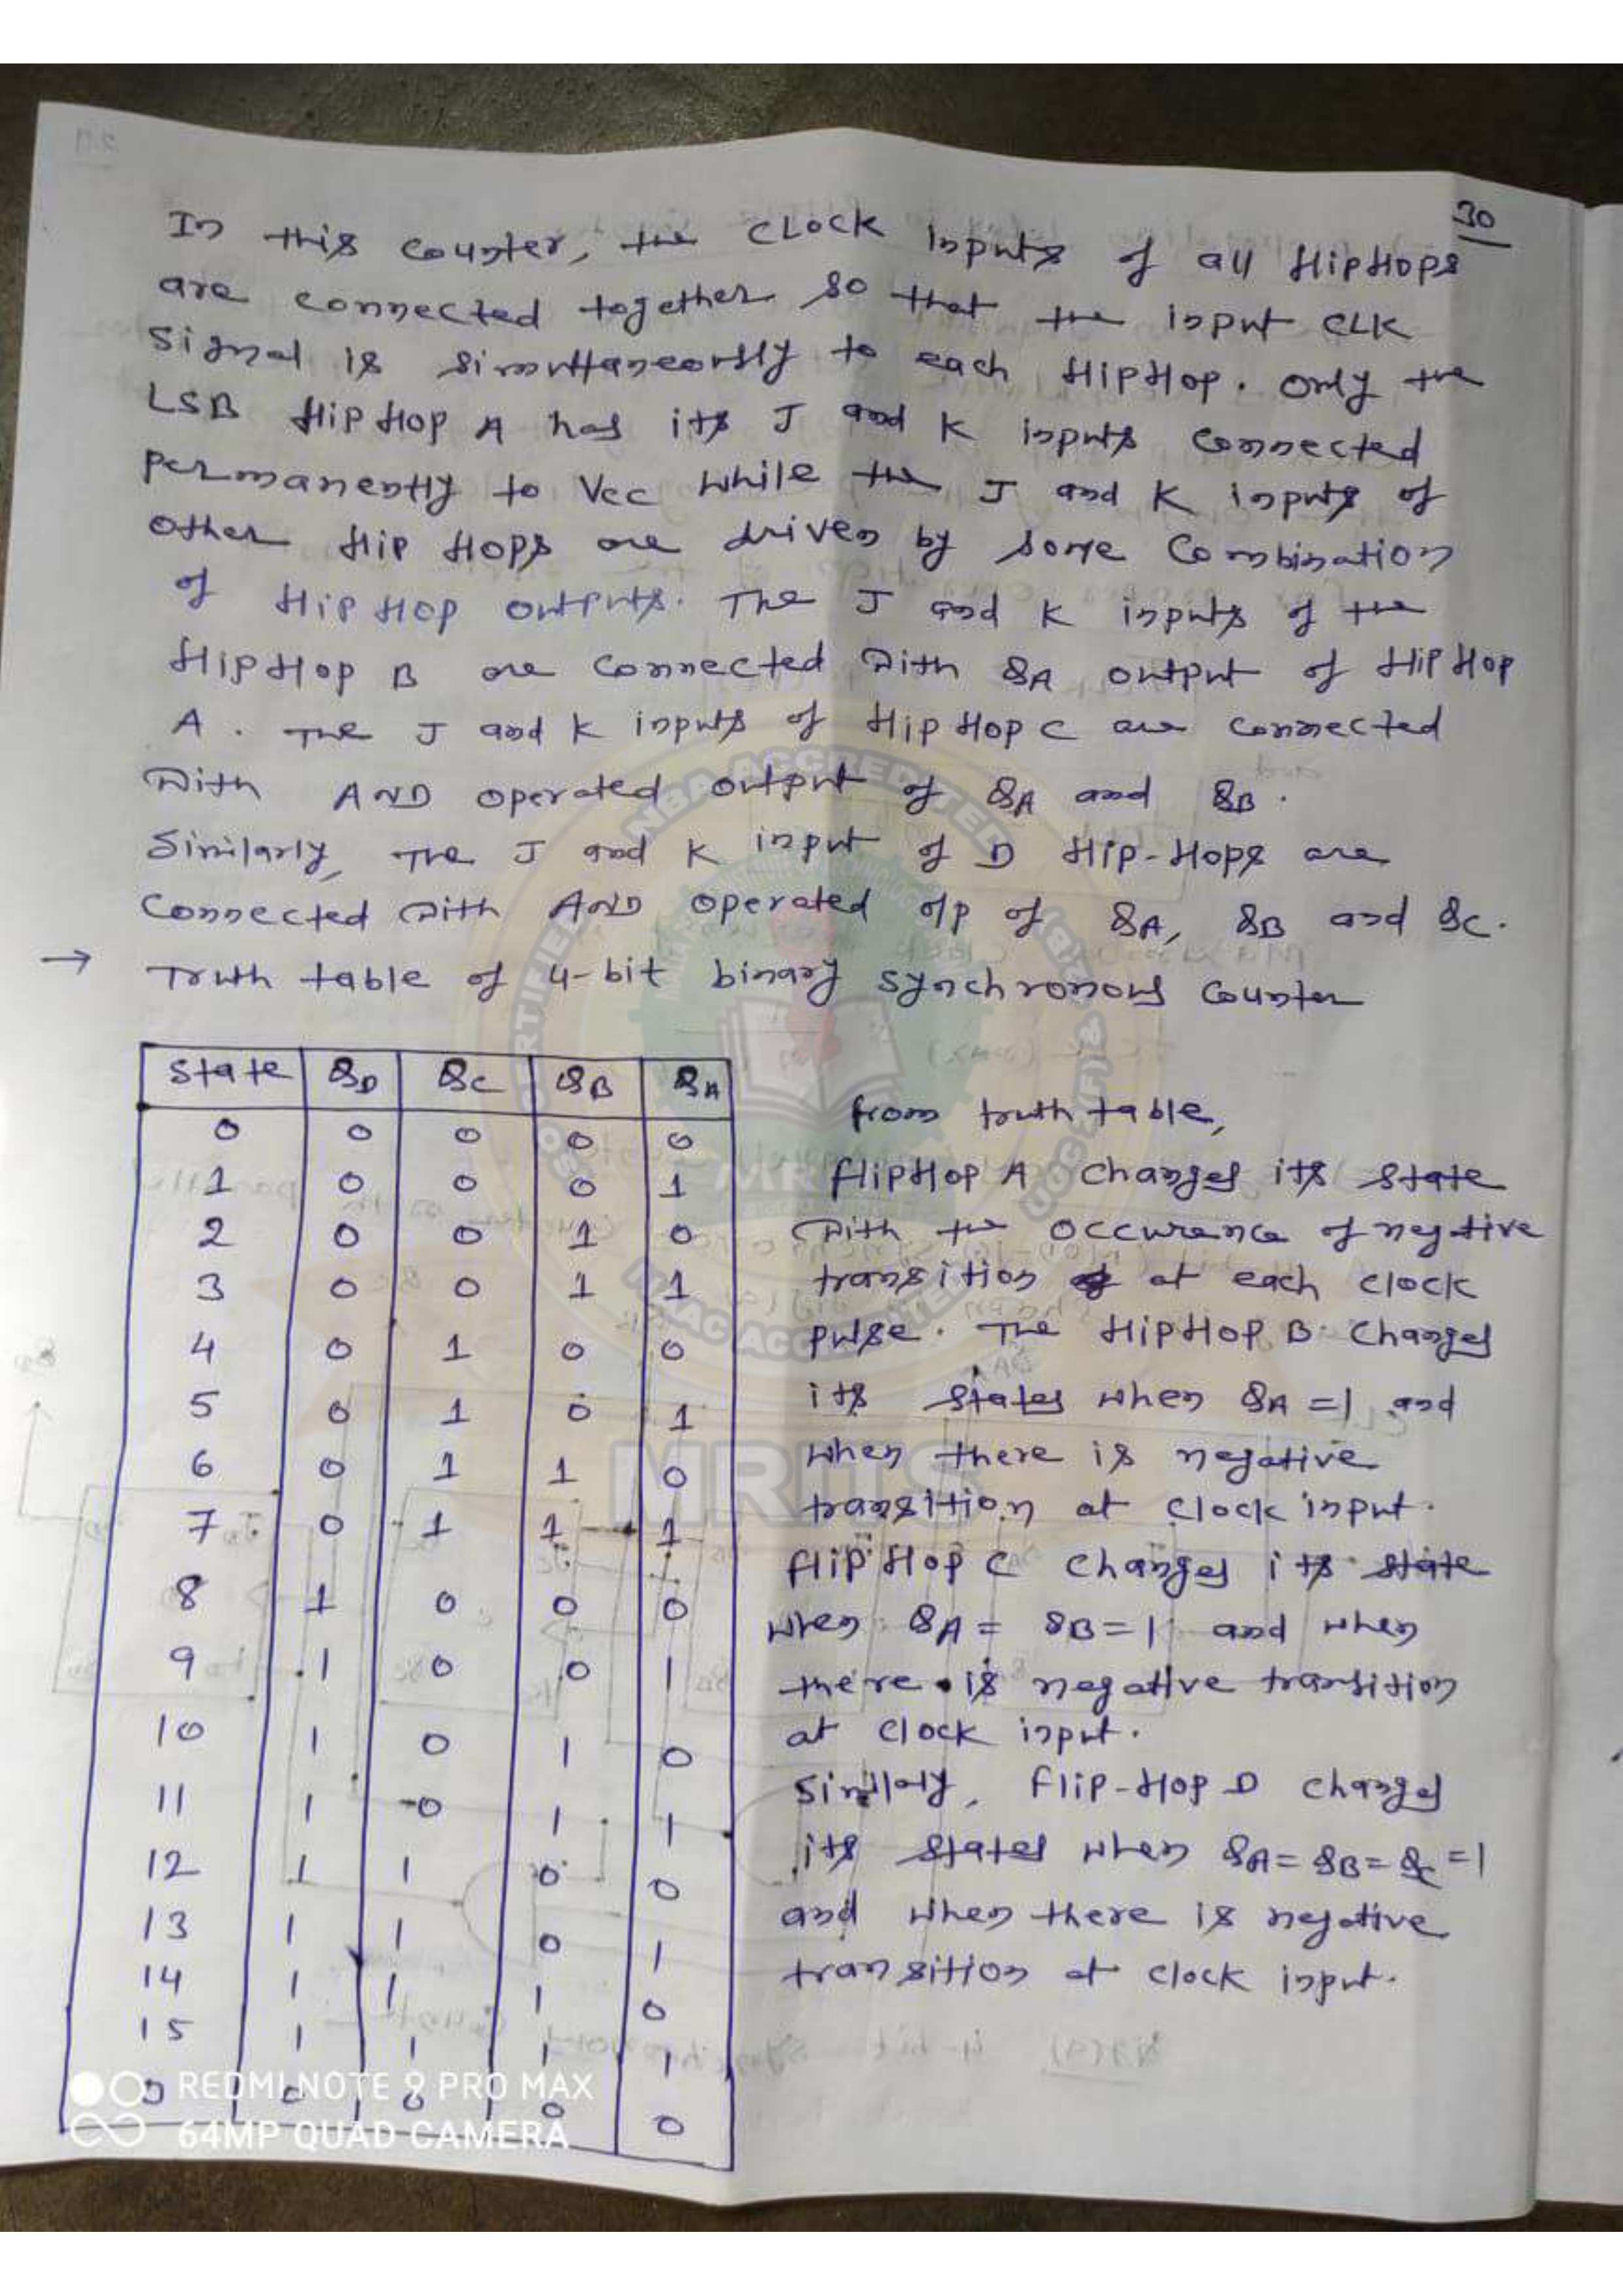 30
In this counter, the CLOCK inputs of all flipflops
are connected together so that the input CLK
Signal is simultaneously to each flipflop. Only the
LSB flipflop A has its J and K inputs connected
permanently to Vcc while the J and K inputs of
other flip flops are driven by some combination
of flipflop outputs. The J and K inputs of the
flipflop B are connected with QA output of flipflop
A. The J and K inputs of flipflop C are connected
with AND operated output of QA and QB.
Similarly, The J and K input of D flip-flops are
connected with AND operated o/p of QA, QB and QC.
→ Truth table of 4-bit binary synchronous counter
State QD QC QB QA
0 0 0 0 0
1 0 0 0 1
2 0 0 1 0
3 0 0 1 1
4 0 1 0 0
5 0 1 0 1
6 0 1 1 0
7 0 1 1 1
8 1 0 0 0
9 1 0 0 1
10 1 0 1 0
11 1 0 1 1
12 1 1 0 0
13 1 1 0 1
14 1 1 1 0
15 1 1 1 1
0 0 0 0 0
from truth table,
flipflop A changes its state
with the occurence of negtive
transition at each clock
pulse. The flipflop B changes
its states when QA =1 and
when there is negative
transition at clock input.
flipflop C changes its state
when QA = QB = 1 and when
there is negative transition
at clock input.
Similarly, Flip-flop D changes
its states when QA = QB = QC = 1
and when there is negative
transition at clock input.
MRITS
REDMI NOTE 9 PRO MAX
64MP QUAD CAMERA